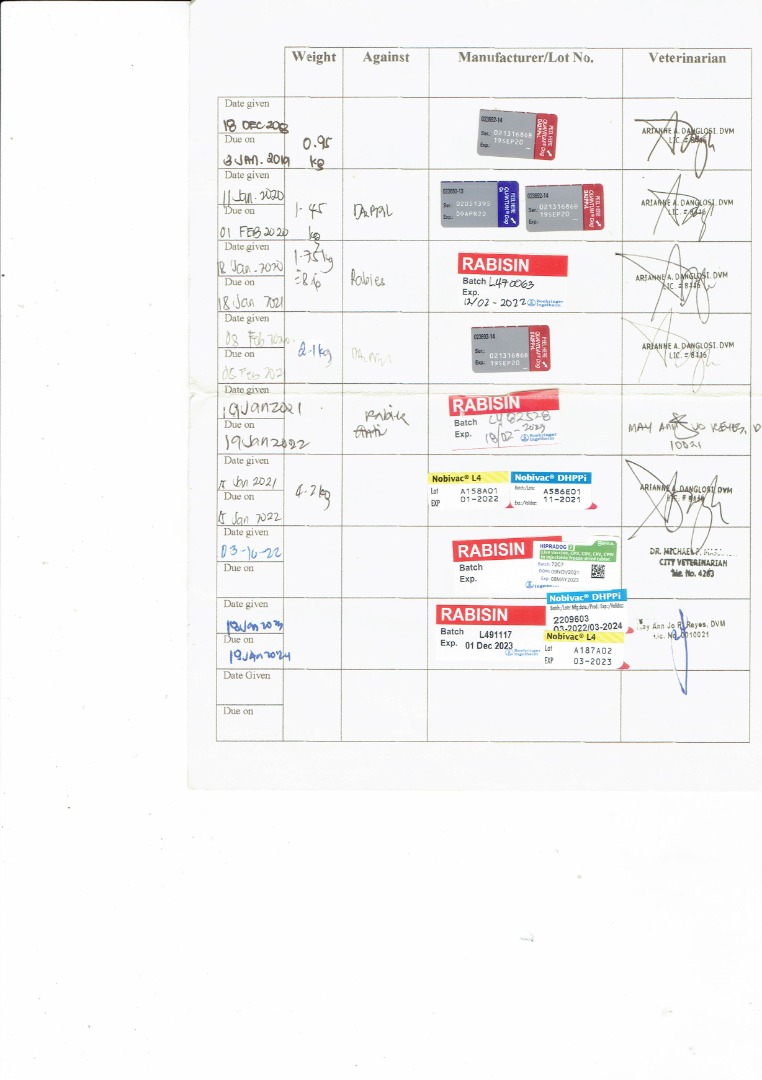 Weight Against Manufacturer/Lot No. Veterinarian
Date given
18 DEC
Due on
3 JAN. 2019
0.95
kg
023692-14
Ser. 02131686B
Exp. 19SEP20
PEEL HERE
QUANTUM® Dog
DA2PPvL
ARIANNE A. DANGLOSI, DVM
LIC. # 8446
Date given
11 Jan. 2020
Due on
01 FEB 2020
1.45
kg
DA2PPVL
Ser. 02031395
Exp. 09APR20
PEEL HERE
QUANTUM® Dog
023692-14
Ser. 02131686B
Exp. 19SEP20
PEEL HERE
QUANTUM® Dog
ARIANNE A. DANGLOSI, DVM
LIC. # 8446
Date given
18 Jan. 2020
Due on
18 Jan 2021
1.75kg
Rabies
RABISIN
Batch L470063
Exp.
12/02 - 2022
Boehringer
Ingelheim
ARIANNE A. DANGLOSI, DVM
LIC. # 8446
Date given
08 Feb 2020
Due on
Feb 2021
2.1kg
023692-14
Ser. 02131686B
Exp. 19SEP20
PEEL HERE
QUANTUM® Dog
ARIANNE A. DANGLOSI, DVM
LIC. # 8446
Date given
19Jan2021
Due on
19Jan2022
RABISIN
Batch
Exp.
Boehringer
Ingelheim
MAY ANN JO REYES, D
10021
Date given
Jan 2021
Due on
Jan 2022
4.2kg
Nobivac® L4
Lot A158A01
EXP 01-2022
Nobivac® DHPPi
A586E01
11-2021
ARIANNE A. DANGLOSI, DVM
Date given
03-16-22
Due on
RABISIN
Batch
Exp.
HIPRADOG 7
Batch: 72C7
DOM: 09NOV2021
Exp: 08MAY2023
DR. MICHAEL
CITY VETERINARIAN
Lic. No. 4263
Date given
19Jan 2023
Due on
19JAN2024
RABISIN
Batch L491117
Exp. 01 Dec 2023
Boehringer
Ingelheim
Nobivac® DHPPi
2209603
03-2022/03-2024
Nobivac® L4
Lot A187A02
EXP 03-2023
May Ann Jo R. Reyes, DVM
Lic. No. 0010021
Date Given
Due on